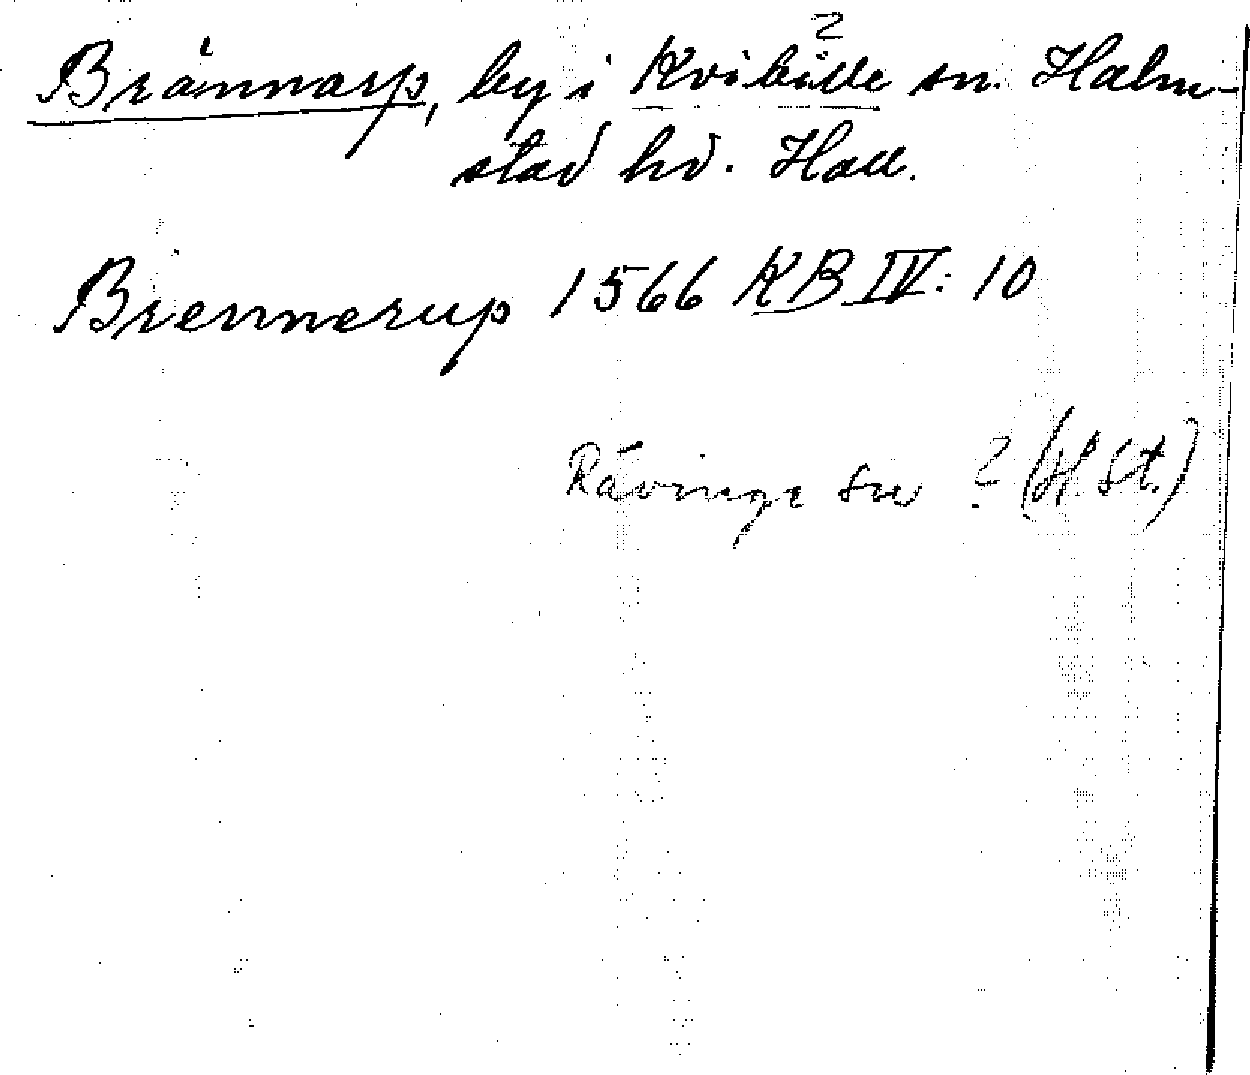 Brännarp, by i Kvibille sn. Halm-
stad hd. Hall.
Brennerup 1566 KB IV: 10
Rävinge sn ? (H St.)